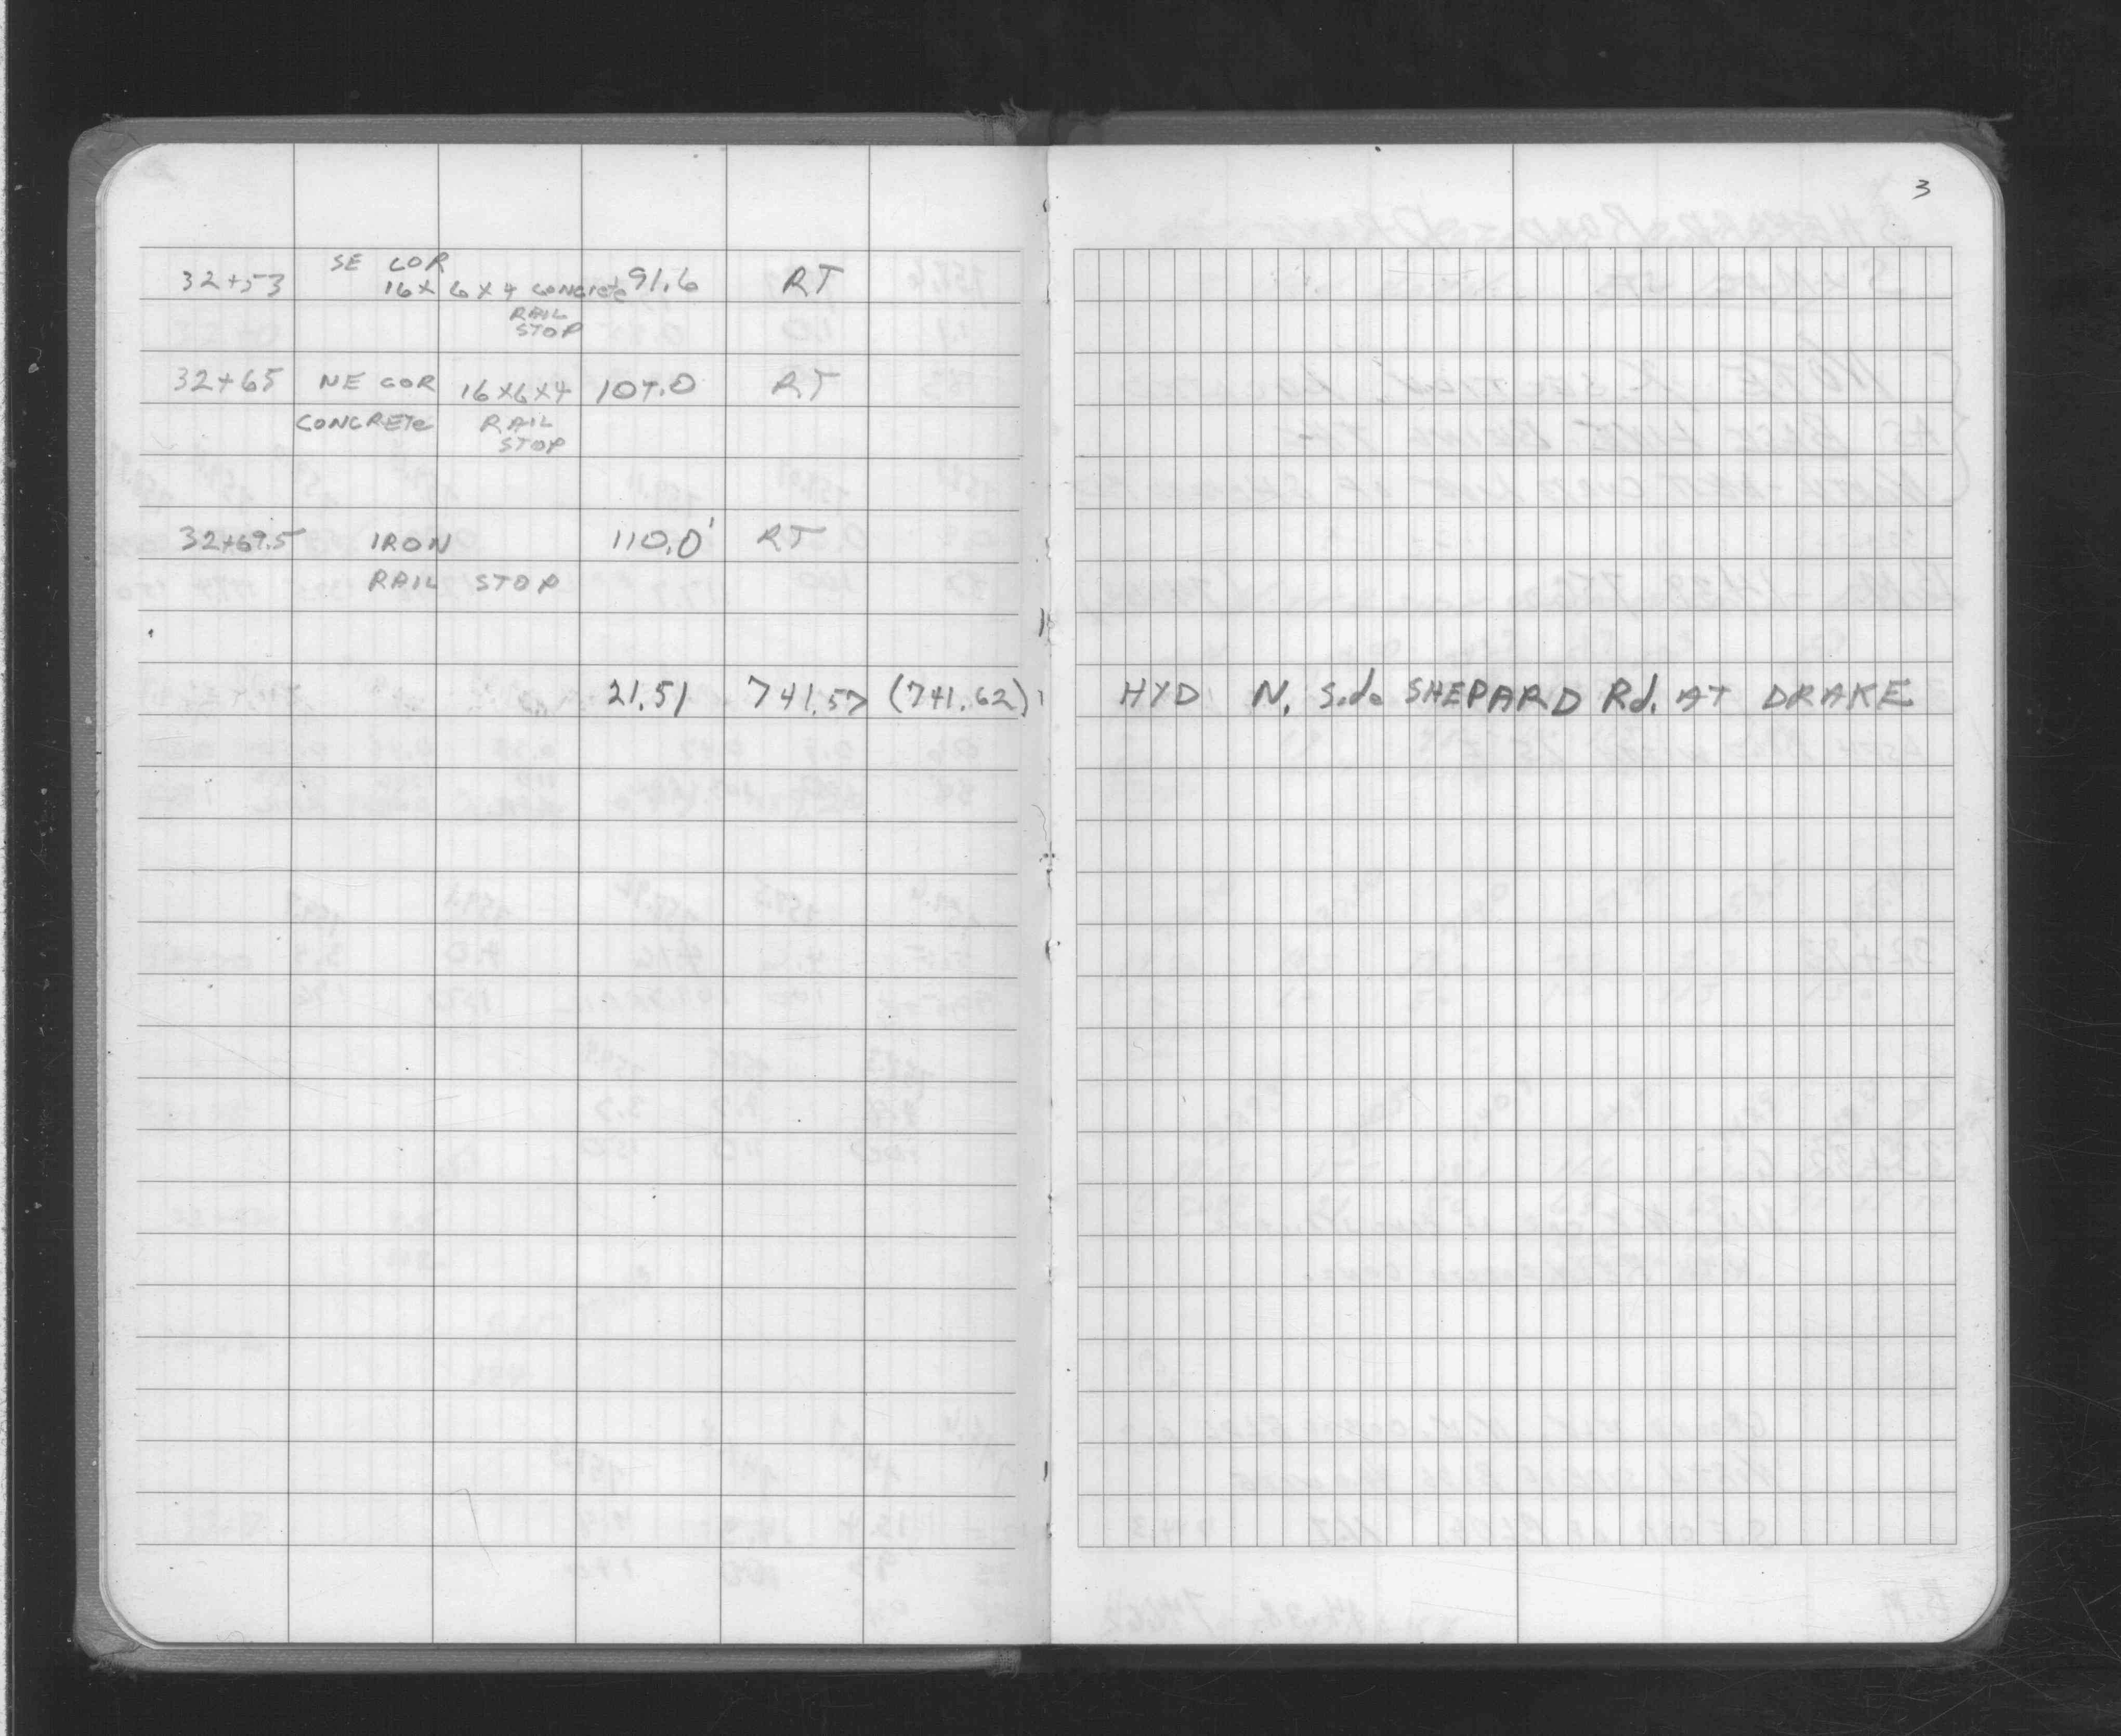 3
SE COR
32+53 16 x 6 x 4 CONCRete 91.6 RT
RAIL
STOP
32+65 NE COR 16x6x4 107.0 RT
CONCRETe RAIL
STOP
32+69.5 IRON 110.0' RT
RAIL STOP
21.51 741.57 (741.62) HYD N. Side SHEPARD Rd. AT DRAKE